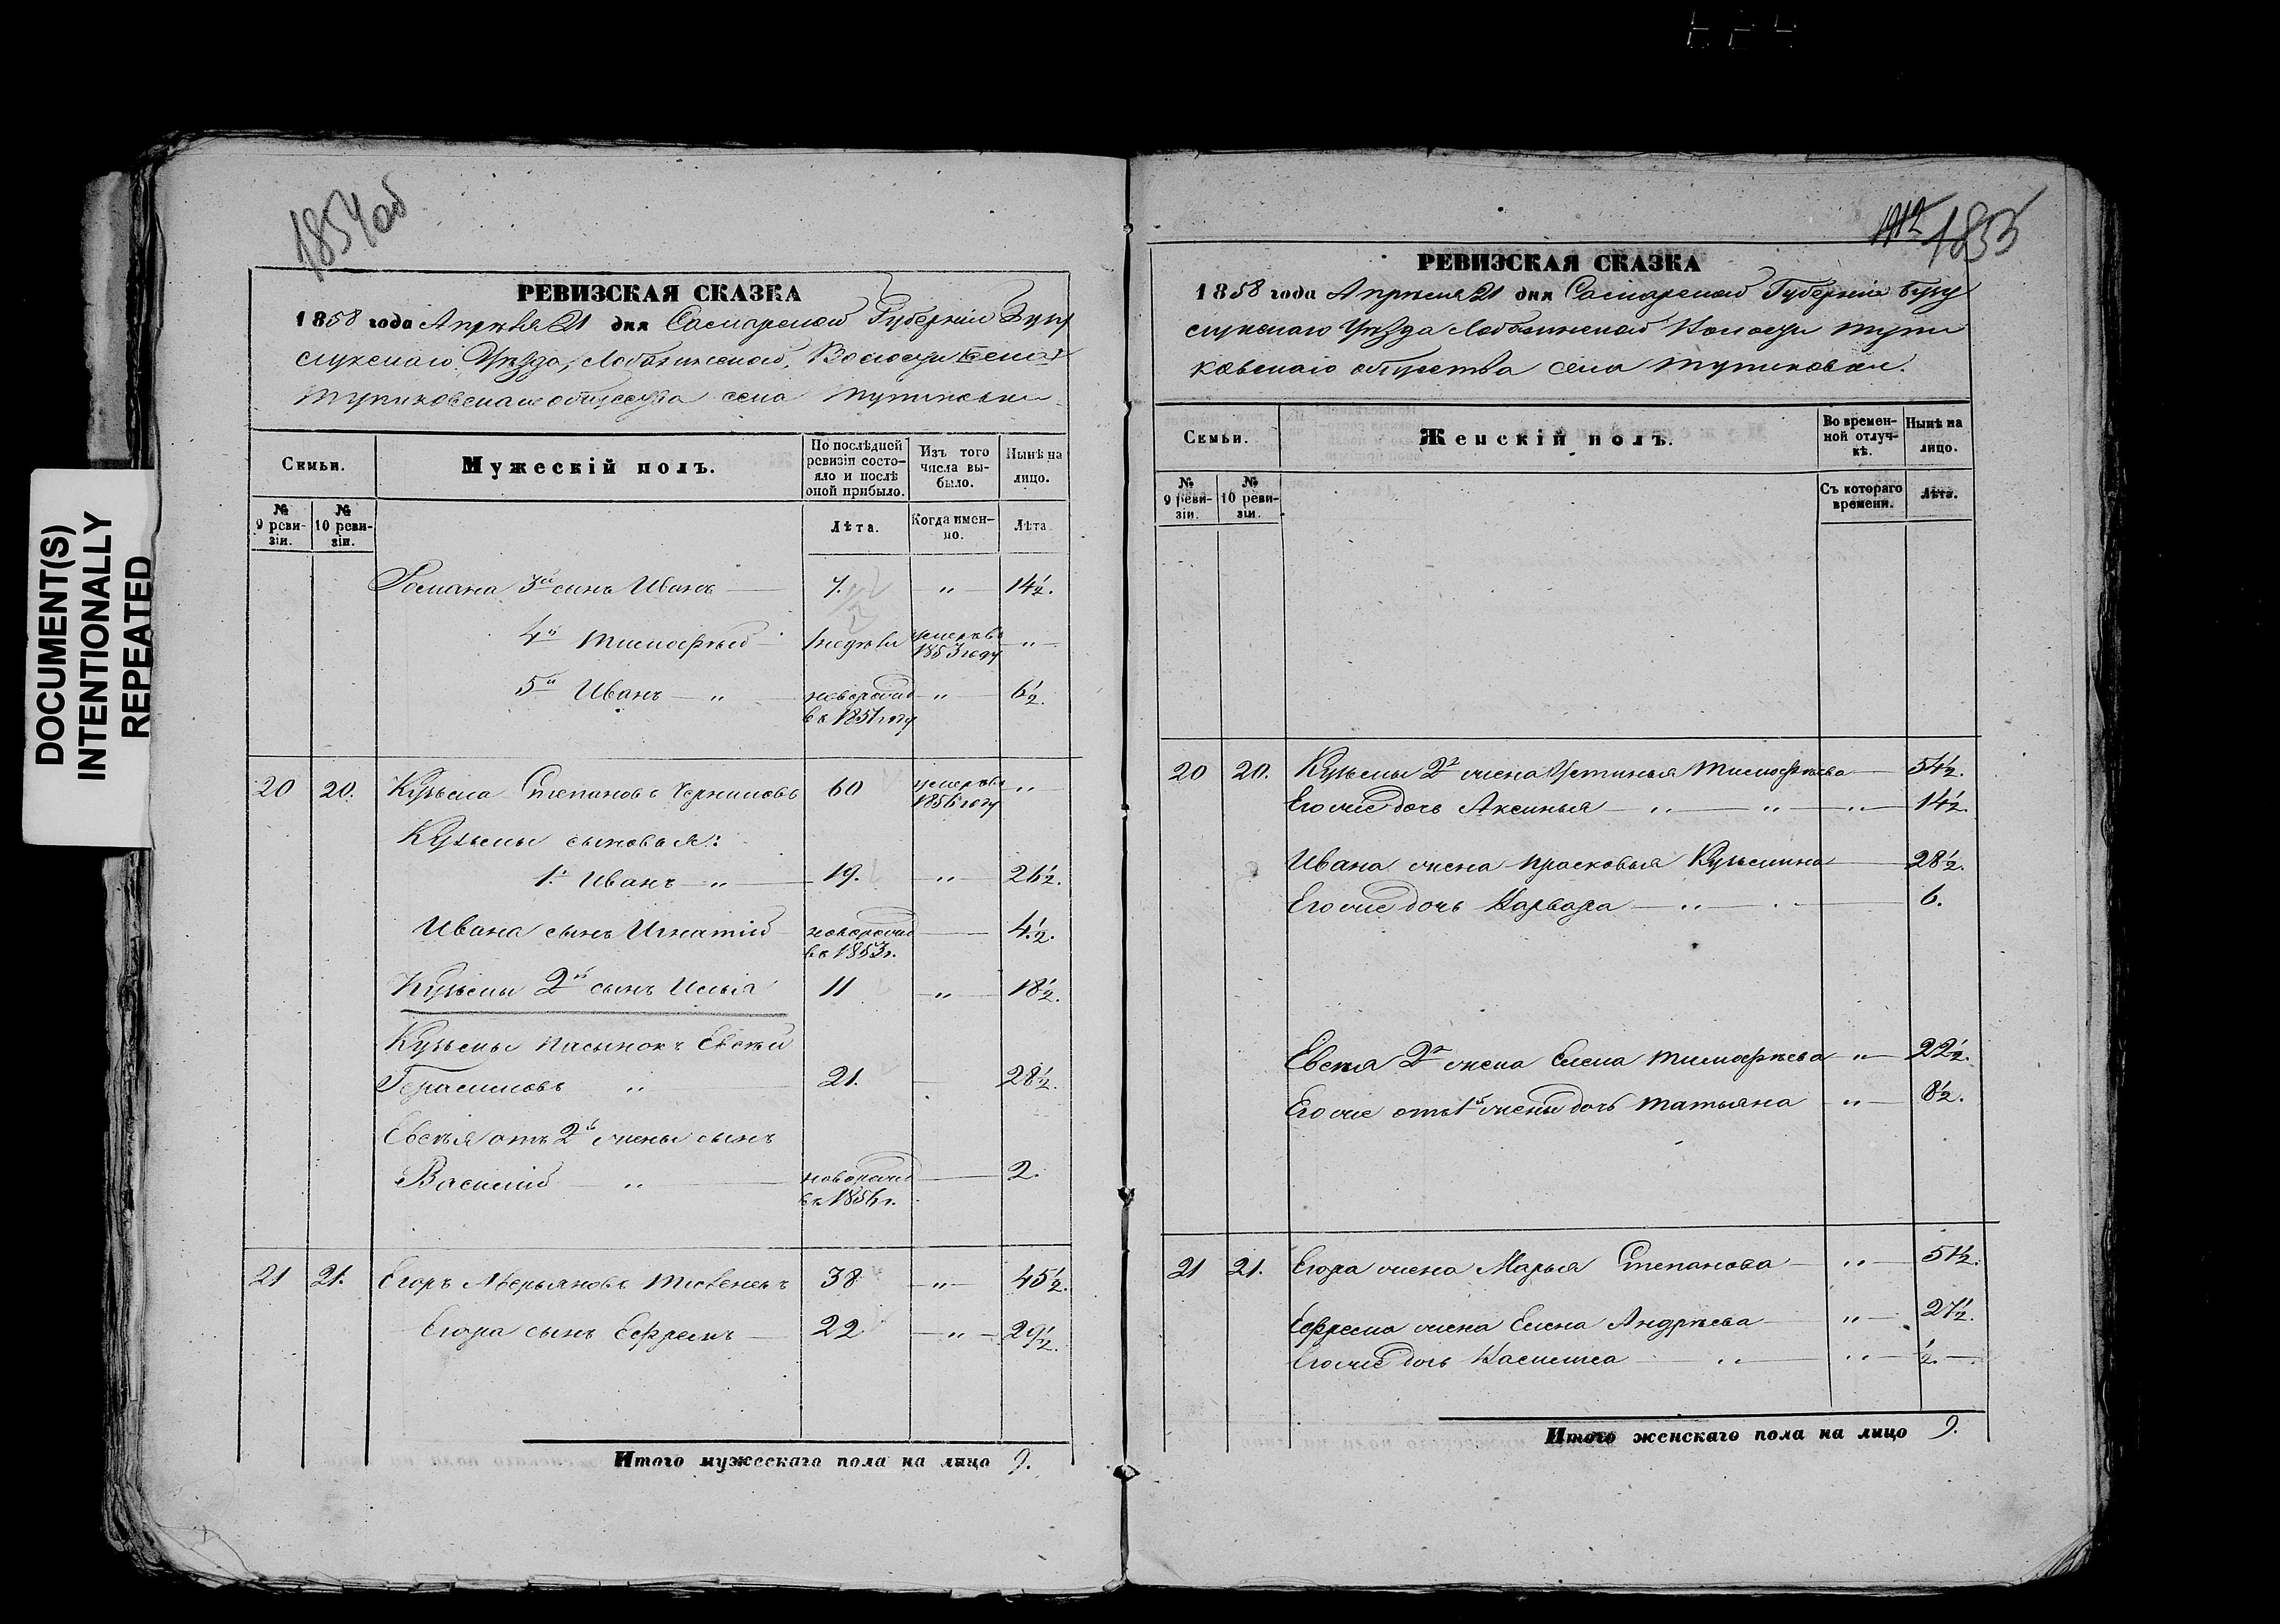 DOCUMENT(S)
INTENTIONALLY
REPEATED
1854 об
РЕВИЗСКАЯ СКАЗКА
1858 года Апрѣля 21 дня Самарской Губерніи Бузу
лукскаго Уѣзда, Лобазинской, Волости
Тупиковскаго общества села Тупиковки
Семьи.
Мужескій полъ.
По послѣдней ревизіи состо-
яло и послѣ
оной прибыло.
Изъ того
числа вы-
было.
Нынѣ на
лицо.
№ 9 реви-
зіи.
№ 10 реви-
зіи.
Лѣта.
Когда имен-
но.
Лѣта.
Романа 3й сынъ Иванъ 7. " 14½.
4й Тимофѣй недѣли умеръ въ 1853 году "
5й Иванъ " новорожд въ 1851 году " 6½.
20 20. Кузьма Степановъ 60 умеръ въ 1856 году "
Кузьмы сыновья:
1й Иванъ " 19. " 26½.
Ивана сынъ Игнатій новорожд въ 1853 г. 4½.
Кузьмы 2й сынъ Илья 11 " 18½.
Кузьмы пасынокъ Евсѣй
Герасимовъ " 21. 28½.
Евсѣя отъ 2й жены сынъ
Василій " новорожд въ 1856 г. 2.
21 21. Егоръ Аверьяновъ 38 " 45½.
Егора сынъ Ефремъ 22 " 29½.
Итого мужескаго пола на лицо 9.
1912 1855
РЕВИЗСКАЯ СКАЗКА
1858 года Апрѣля 21 дня Самарской Губерніи Бузу
лукскаго Уѣзда Лобазинской Волости Тупи
ковскаго общества села Тупиковки.
Семьи.
Женскій полъ.
Во времен-
ной отлуч-
кѣ.
Нынѣ на
лицо.
№ 9 реви-
зіи.
№ 10 реви-
зіи.
Съ котораго
времени.
Лѣта.
20 20. Кузьмы 2я жена Устинья Тимофѣева 54½.
Его же дочь Аксинья " " " 14½.
Ивана жена Прасковья Кузьмина 28½.
Его же дочь Варвара " 6.
Евсѣя 2я жена Елена Тимофѣева " 22½.
Его же отъ 1й жены дочь Татьяна " 8½.
21 21. Егора жена Марья Степанова " 51½.
Ефрема жена Елена Андрѣева " 27½.
Его же дочь Василиса " " ½.
Итого женскаго пола на лицо 9.